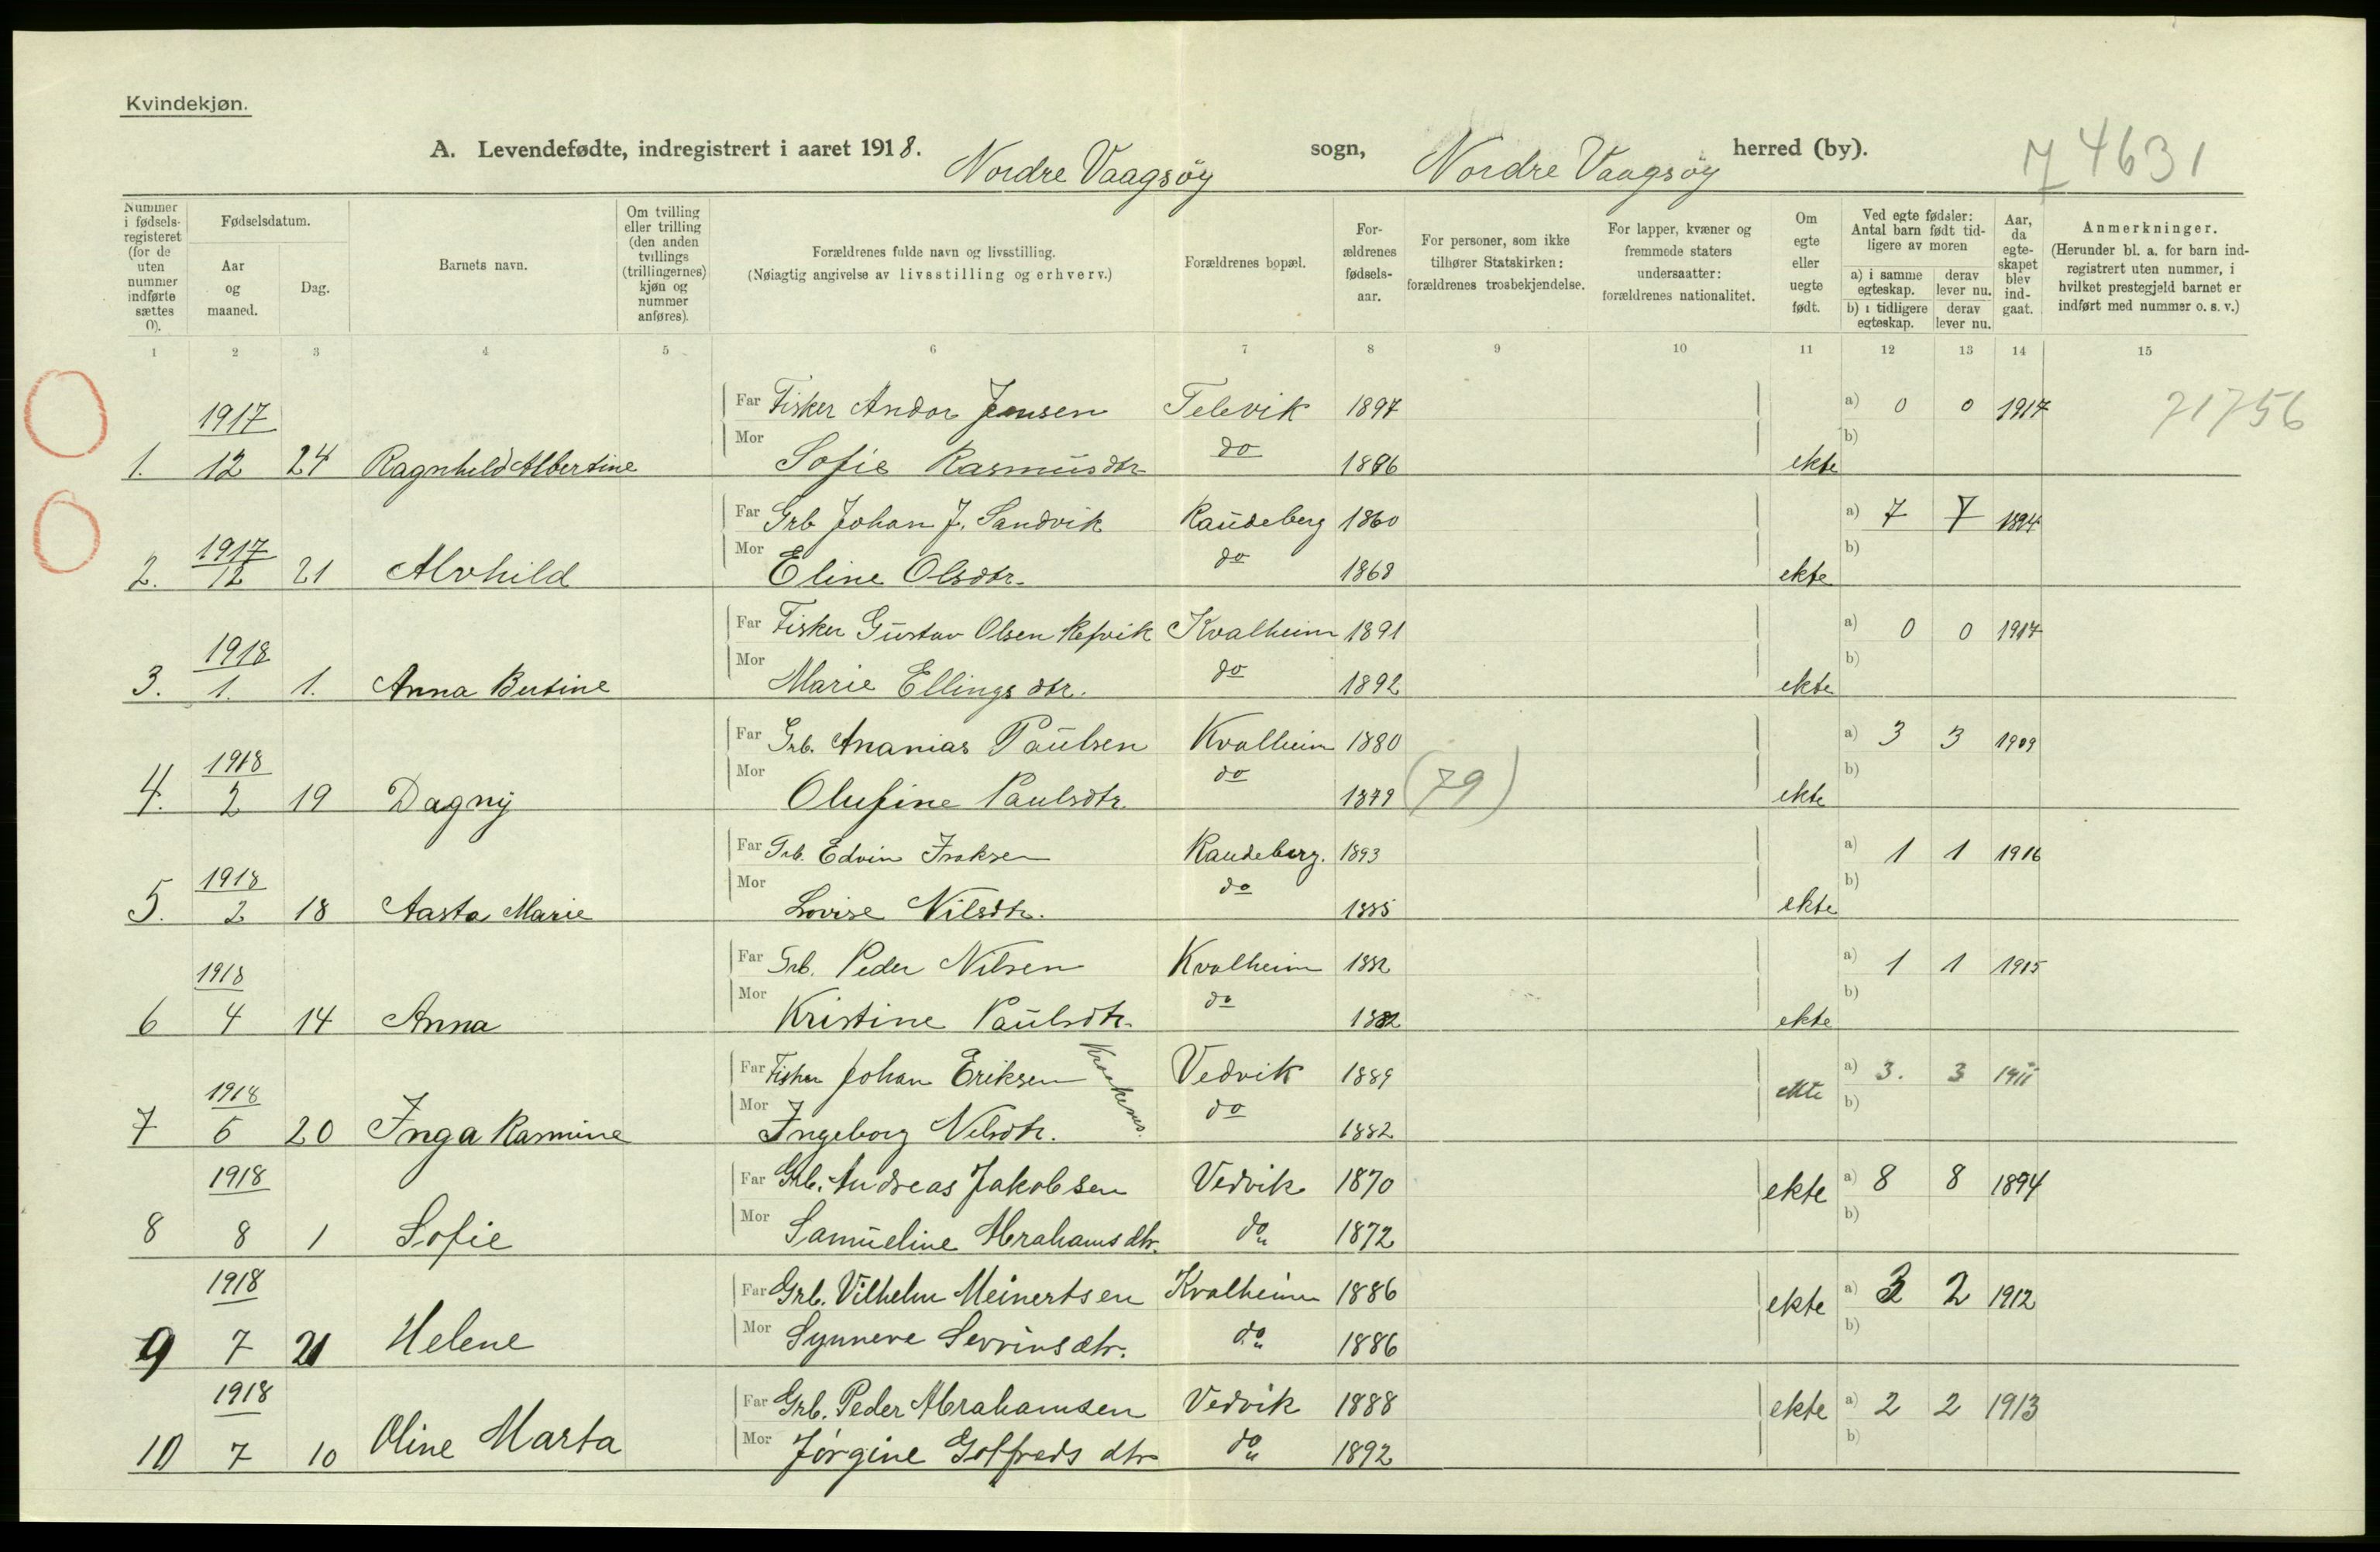 Kvindekjøn.
A. Levendefødte, indregistrert i aaret 1918. Nordre Vaagsøy sogn, Nordre Vaagsøy herred (by). 74631
Nummer i fødsels-registeret (for de uten nummer indførte sættes 0).
Fødselsdatum.
Aar og maaned.
Dag.
Barnets navn.
Om tvilling eller trilling (den anden tvillings (trillingernes) kjøn og nummer anføres).
Forældrenes fulde navn og livsstilling.
(Nøiagtig angivelse av livsstilling og erhverv.)
Forældrenes bopæl.
Forældrenes fødsels-aar.
For personer, som ikke tilhører Statskirken: forældrenes trosbekjendelse.
For lapper, kvæner og fremmede staters undersaatter: forældrenes nationalitet.
Om egte eller uegte født.
Ved egte fødsler: Antal barn født tidligere av moren
a) i samme egteskap. derav lever nu.
b) i tidligere egteskap. derav lever nu.
Aar, da egteskapet blev indgaat.
Anmerkninger.
(Herunder bl. a. for barn indregistrert uten nummer, i hvilket prestegjeld barnet er indført med nummer o. s. v.)
1 2 3 4 5 6 7 8 9 10 11 12 13 14 15
1917 Far Fisker Andor Jensen Televik 1897 a) 0 0 1917 71756
1. 12 24 Ragnhild Albertine Mor Sofie Rasmusdtr do 1896 ekte b)
1917 Far Grb Johan J. Sandvik Raudeberg 1860 a) 7 7 1894
2. 12 21 Alvhild Mor Eline Olsdtr. do 1868 ekte b)
1918 Far Fisker Gustav Olsen Refvik Kvalheim 1891 a) 0 0 1917
3. 1. 1. Anna Bertine Mor Marie Ellingsdtr. do 1892 ekte b)
1918 Far Grb. Ananias Paulsen Kvalheim 1880 a) 3 3 1909
4. 2 19 Dagny Mor Olufine Paulsdtr. do 1879 (79) ekte b)
1918 Far Grb. Edvin Isaksen Raudeberg. 1893 a) 1 1 1916
5. 2 18 Aasta Marie Mor Lovise Nilsdtr. do 1885 ekte b)
1918 Far Grb. Peder Nilsen Kvalheim 1882 a) 1 1 1915
6 4 14 Anna Mor Kristine Paulsdtr. do 1882 ekte b)
1918 Far Fisker Johan Eriksen Kraakenes. Vedvik 1889 ekte a) 3. 3 1911
7 5 20 Inga Rasmine Mor Ingeborg Nilsdtr. do 1882 b)
1918 Far Grb. Andreas Jakobsen Vedvik 1870 ekte a) 8 8 1894
8 8 1 Sofie Mor Samueline Abrahamsdtr. do 1872 b)
1918 Far Grb. Vilhelm Meinertsen Kvalheim 1886 ekte a) 3 2 1912
9 7 21 Helene Mor Synneve Severinsdtr. do 1886 b)
1918 Far Grb. Peder Abrahamsen Vedvik 1888 ekte a) 2 2 1913
10 7 10 Oline Marta Mor Jørgine Gotfreds dtr do 1892 b)